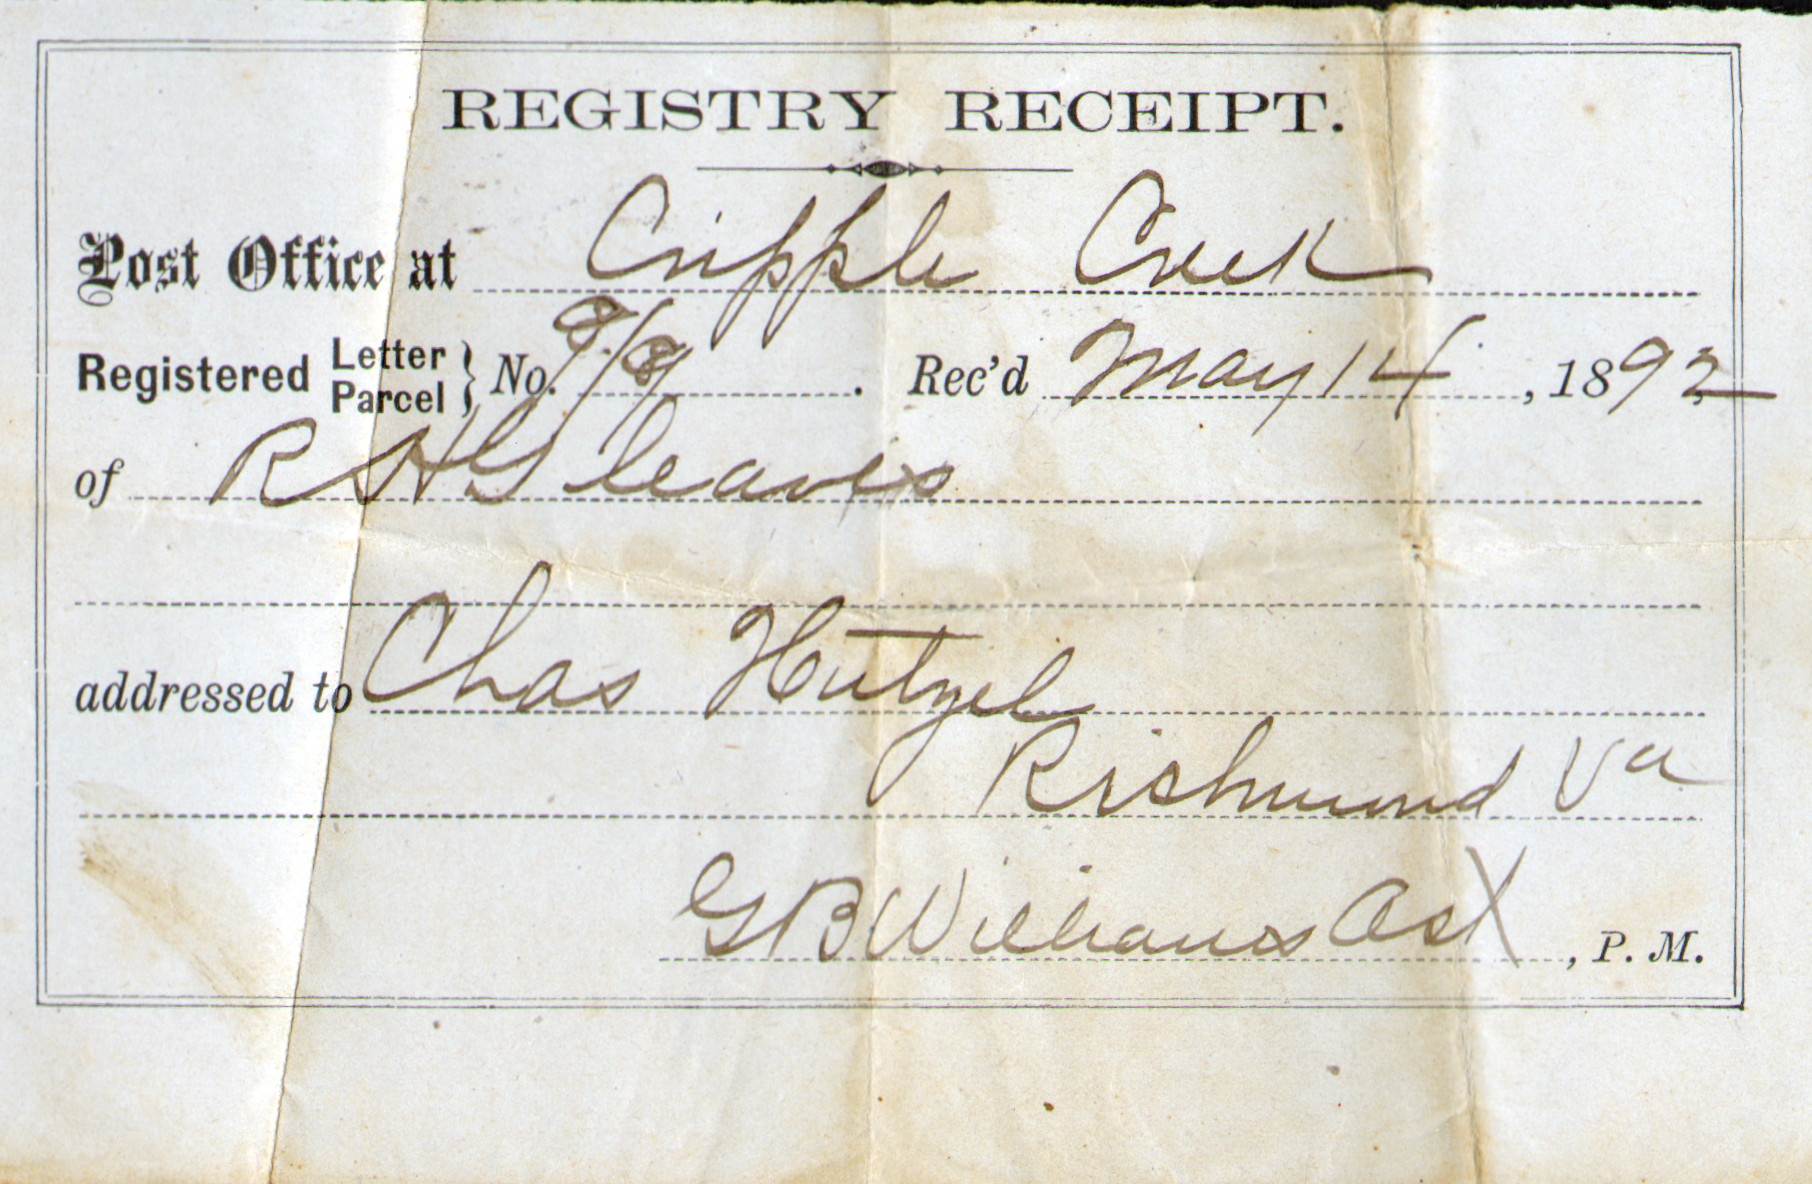 REGISTRY RECEIPT.
Post Office at Cripple Creek
Registered Letter Parcel } No. . Rec'd May 14, 1892
of R S H Gleaves
addressed to Chas Hutzel
Richmond Va
G B Williams Ast, P. M.